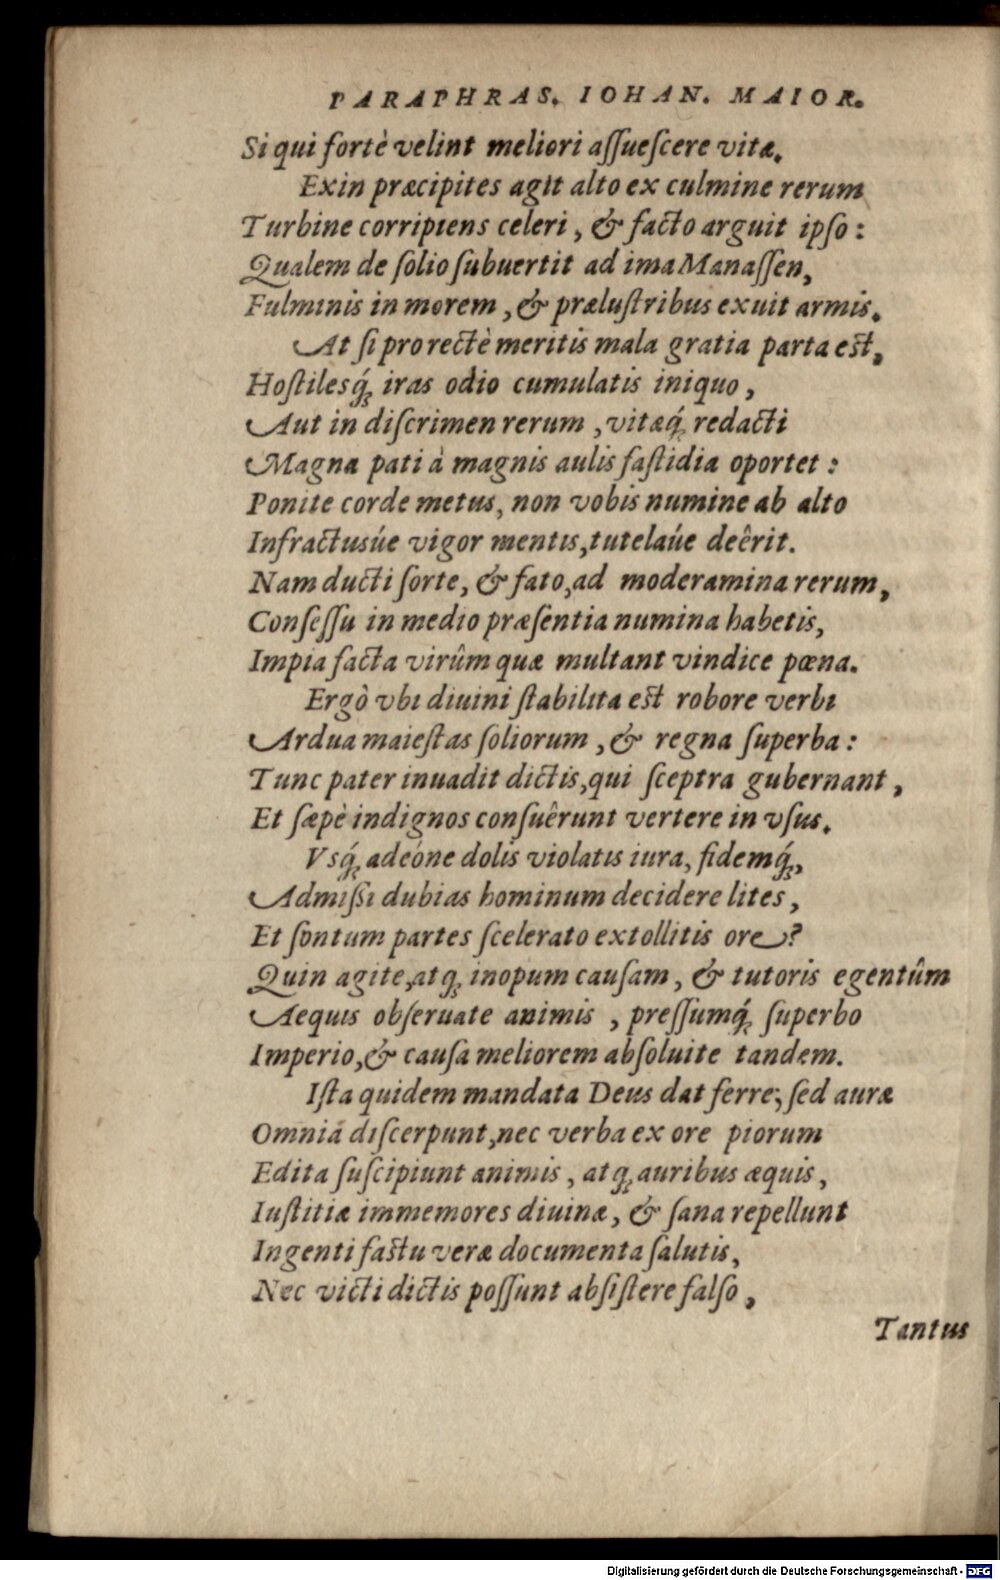 PARAPHRAS. IOHAN. MAIOR.
Si qui fortè velint meliori aſſueſcere vitæ.
Exin præcipites agit alto ex culmine rerum
Turbine corripiens celeri, & facto arguit ipſo:
Qualem de ſolio ſubuertit ad ima Manaſſen,
Fulminis in morem, & præluſtribus exuit armis.
At ſi pro rectè meritis mala gratia parta eſt,
Hoſtilesq́; iras odio cumulatis iniquo,
Aut in diſcrimen rerum, vitæq́; redacti
Magna pati à magnis aulis faſtidia oportet:
Ponite corde metus, non vobis numine ab alto
Infractusúe vigor mentis, tutelaúe deêrit.
Nam ducti ſorte, & fato, ad moderamina rerum,
Conſeſſu in medio præſentia numina habetis,
Impia facta virûm quæ multant vindice pœna.
Ergò vbi diuini ſtabilita eſt robore verbi
Ardua maieſtas ſoliorum, & regna ſuperba:
Tunc pater inuadit dictis, qui ſceptra gubernant,
Et ſæpè indignos conſuêrunt vertere in vſus.
Vsq́; adeóne dolis violatis iura, fidemq́;,
Admiſsi dubias hominum decidere lites,
Et ſontum partes ſcelerato extollitis ore?
Quin agite, atq; inopum cauſam, & tutoris egentûm
Aequis obſeruate animis, preſſumq́; ſuperbo
Imperio, & cauſa meliorem abſoluite tandem.
Iſta quidem mandata Deus dat ferre; ſed auræ
Omnia diſcerpunt, nec verba ex ore piorum
Edita ſuſcipiunt animis, atq; auribus æquis,
Iuſtitiæ immemores diuinæ, & ſana repellunt
Ingenti faſtu veræ documenta ſalutis,
Nec victi dictis poſſunt abſiſtere falſo,
Tantus
Digitalisierung gefördert durch die Deutsche Forschungsgemeinschaft - DFG